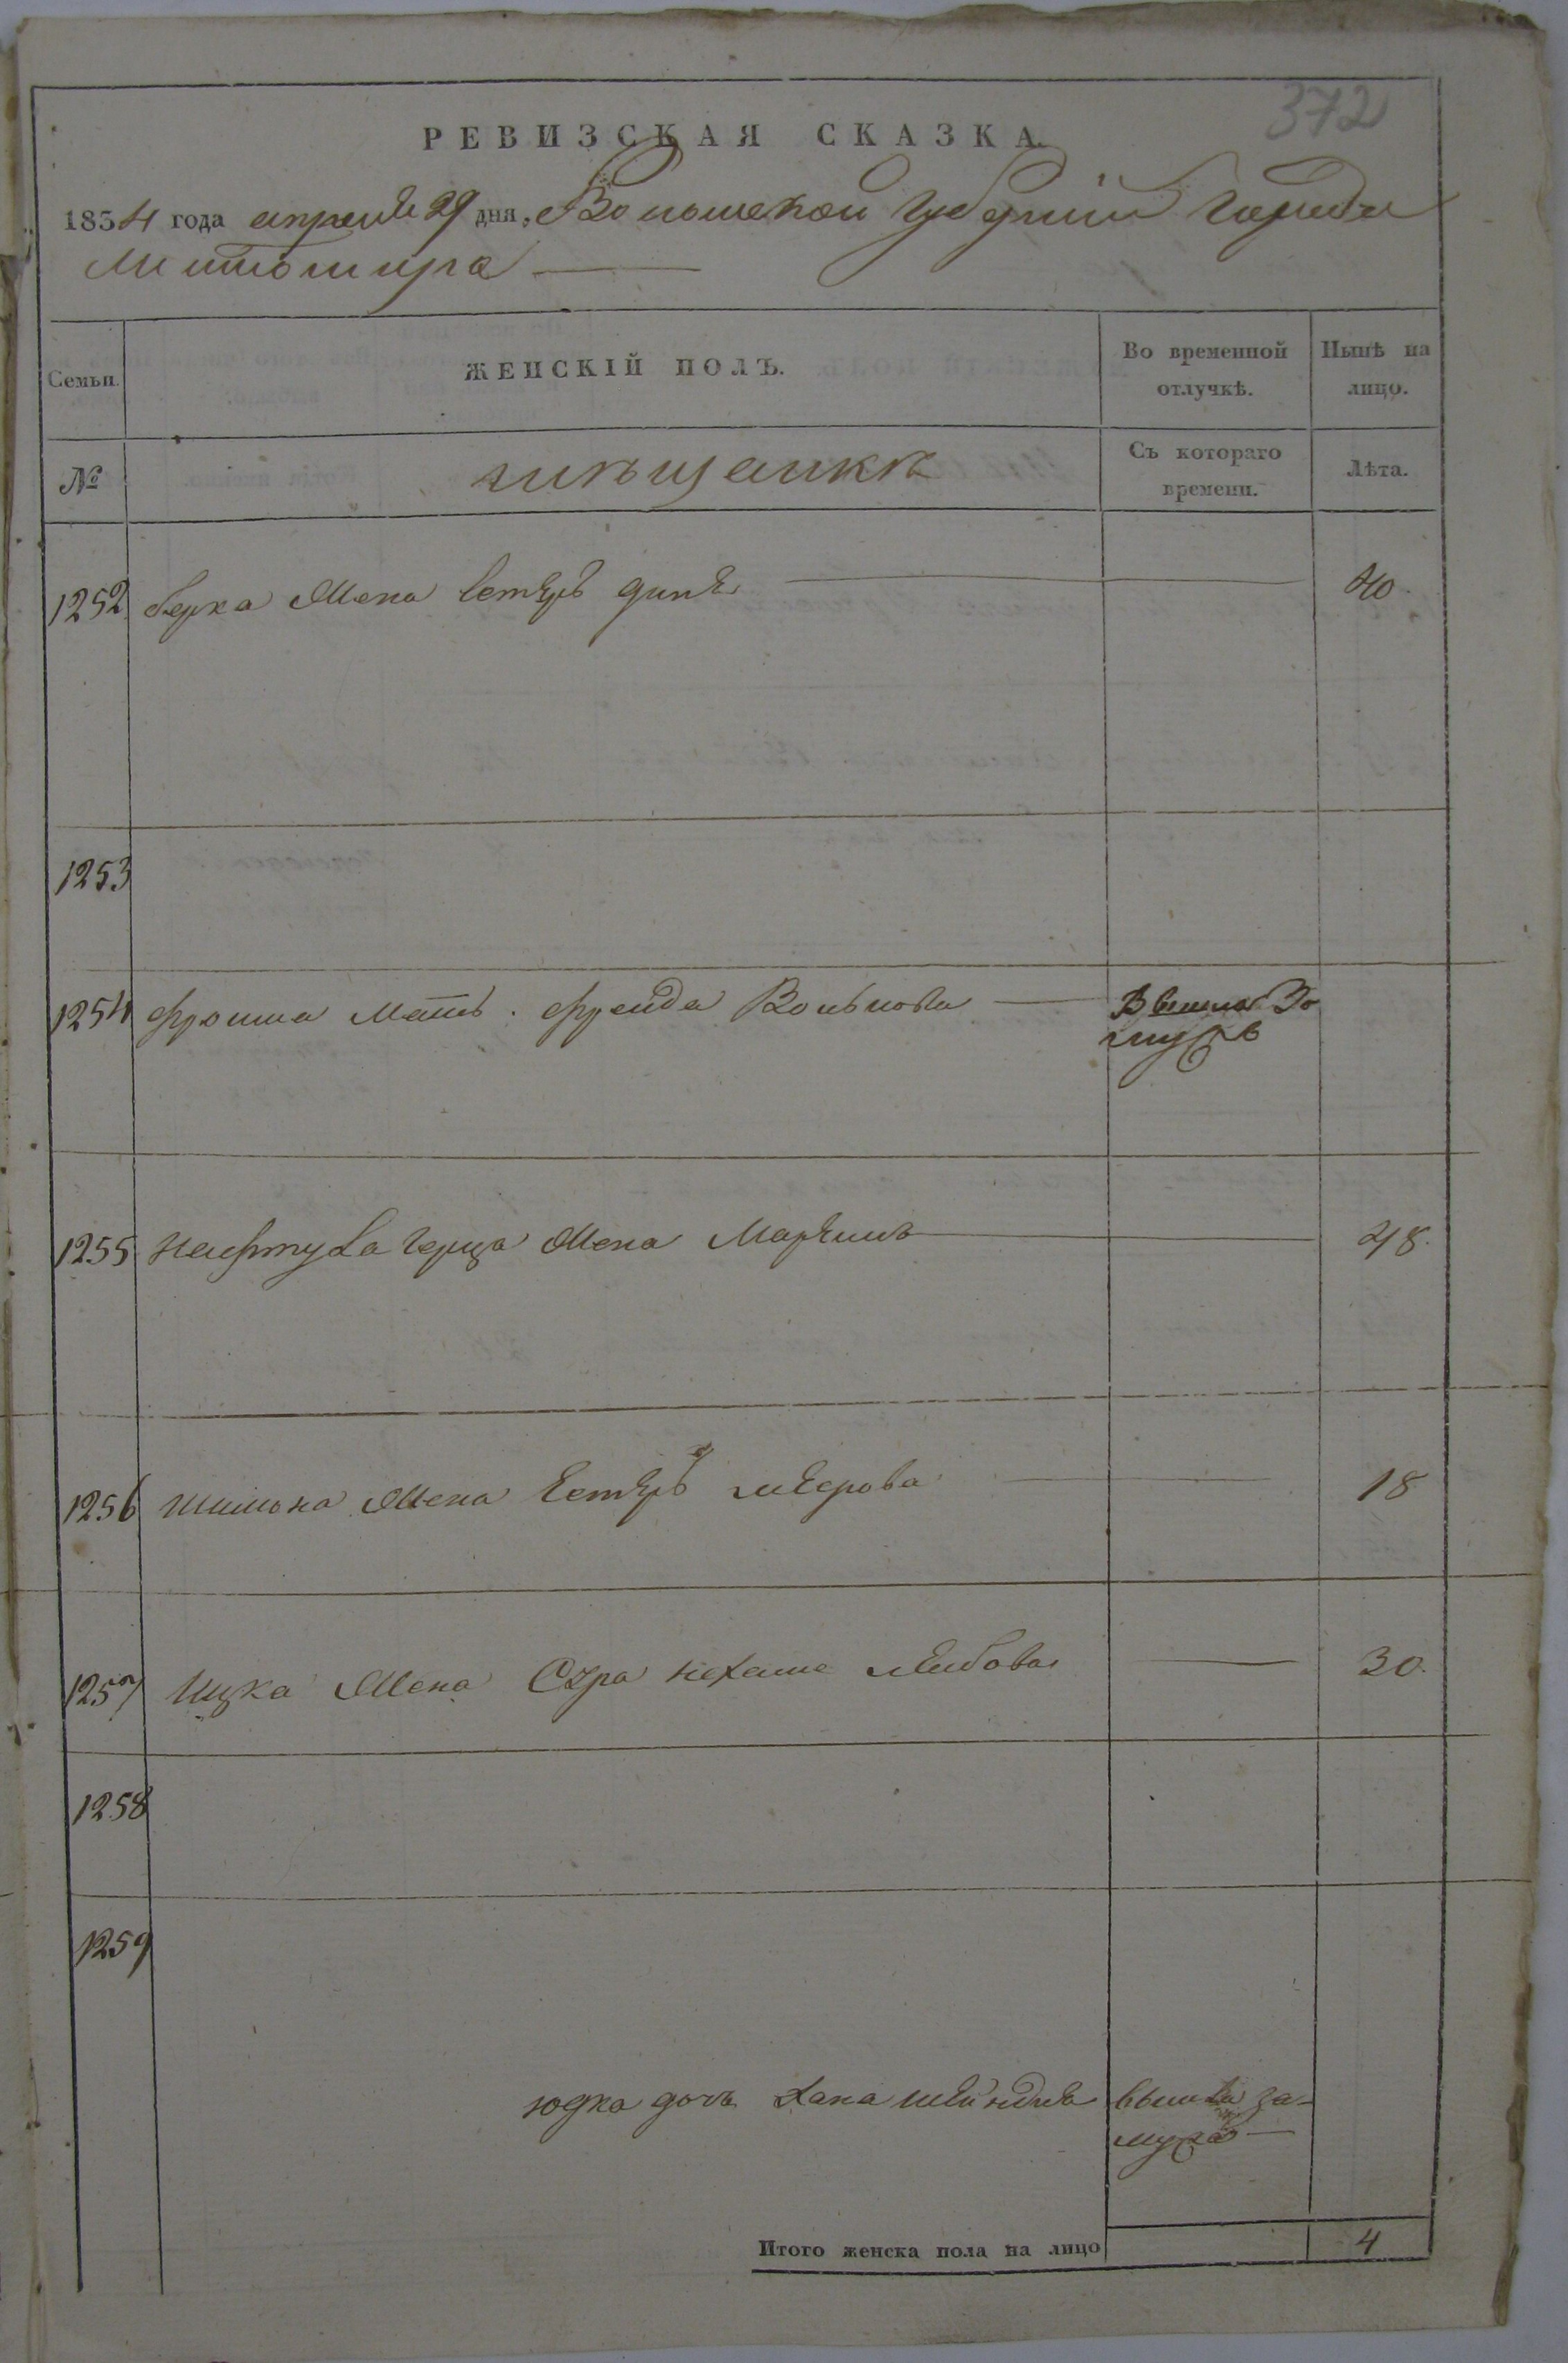 372
РЕВИЗСКАЯ СКАЗКА.
1854 года апреля 29 дня, Волынской губерніи города
Житомира
Семьи.
ЖЕНСКІЙ ПОЛЪ.
Во временной отлучкѣ.
Нынѣ на лицо.
№
мѣщанкѣ
Съ котораго времени.
Лѣта.
1252 берка Жена Естеръ 40.
1253
1254 Фроима Мать. Фрейда Волькова Вышла За
мужъ
1255 Нафтула герца Жена Маріимъ 48.
1256 шимона Жена Естеръ меерова 18
1257 Ицка Жена Сура Нехама лейбова 30.
1258
1259
юдка дочь Хана шейндля вышла за-
мужъ
Итого женска пола на лицо 4